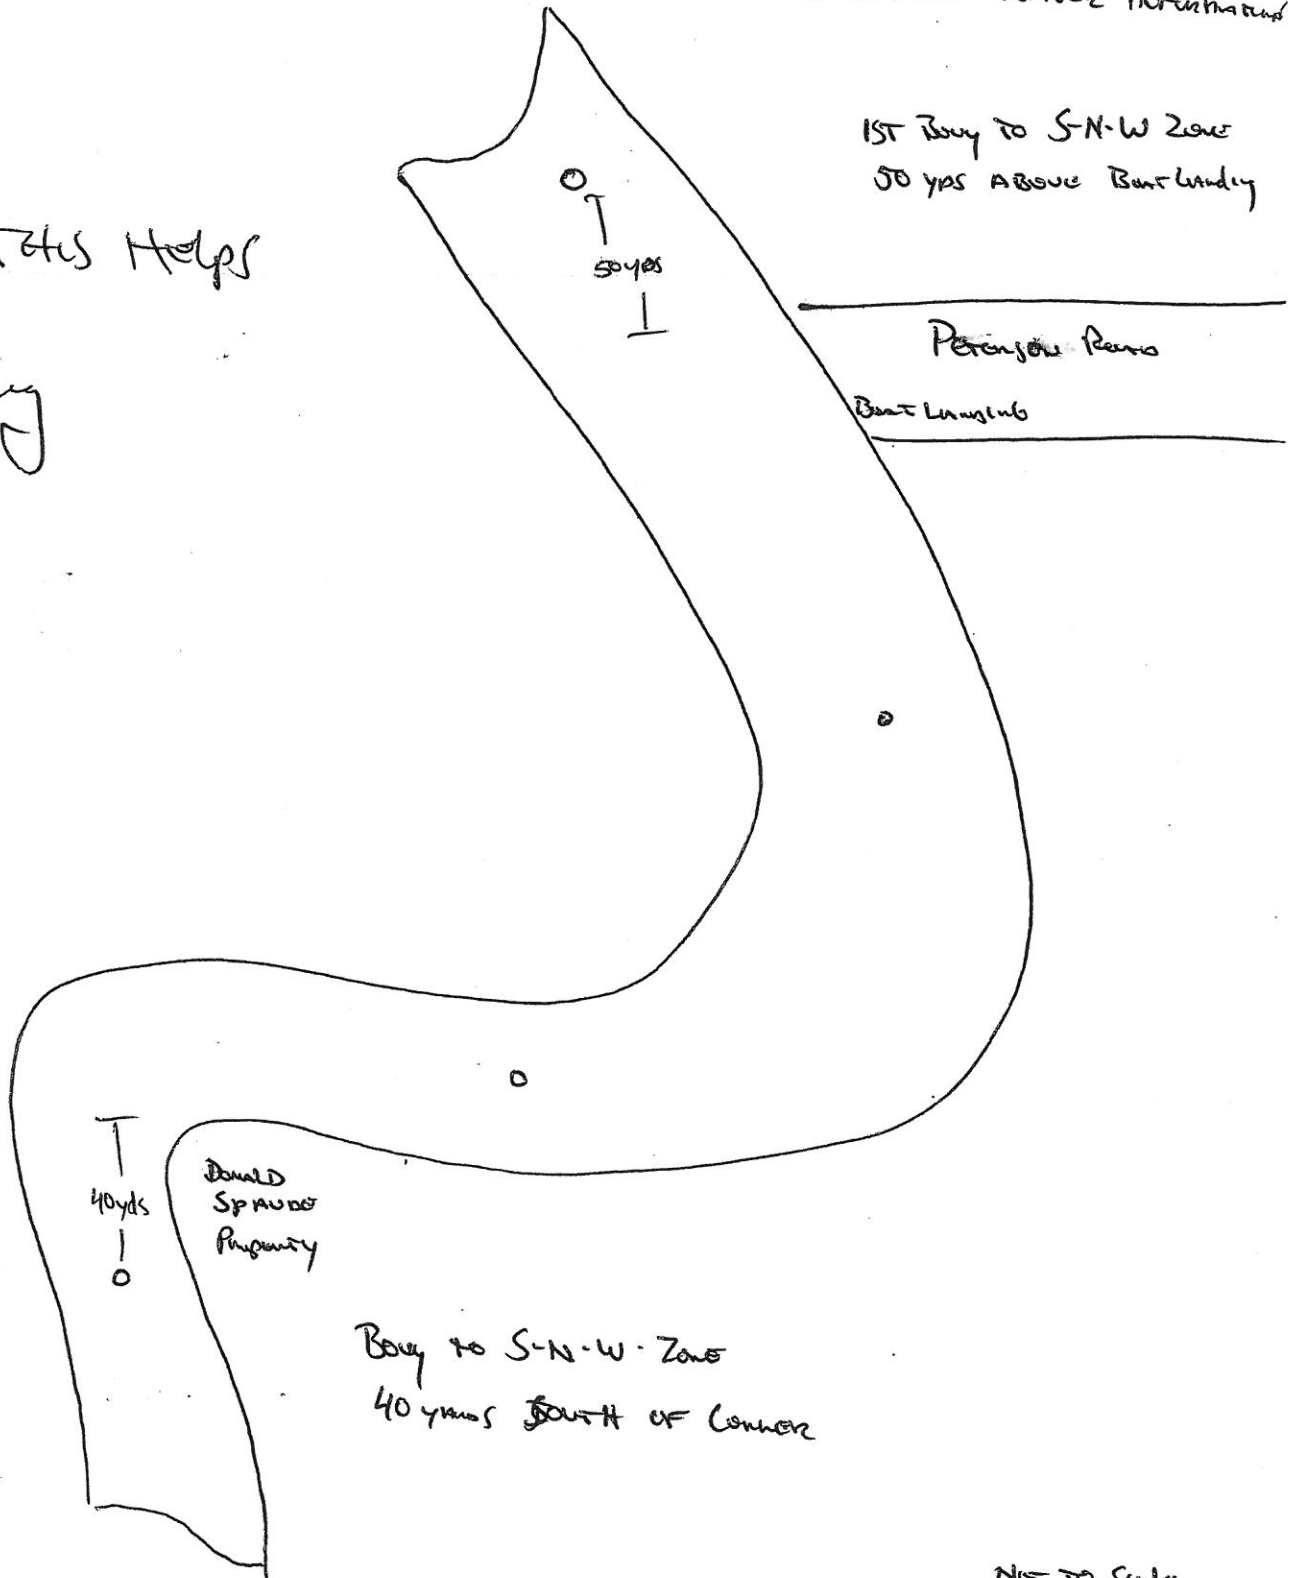 1ST Bouy TO S-N-W ZONE
50 YDS ABOVE Boat Landing
Helps
50 YDS
Peterson Road
Boat Landing
40 yds
Donald
SPAUDE
Property
Bouy to S-N-W. Zone
40 yards South OF CORNER
NOT TO Scale